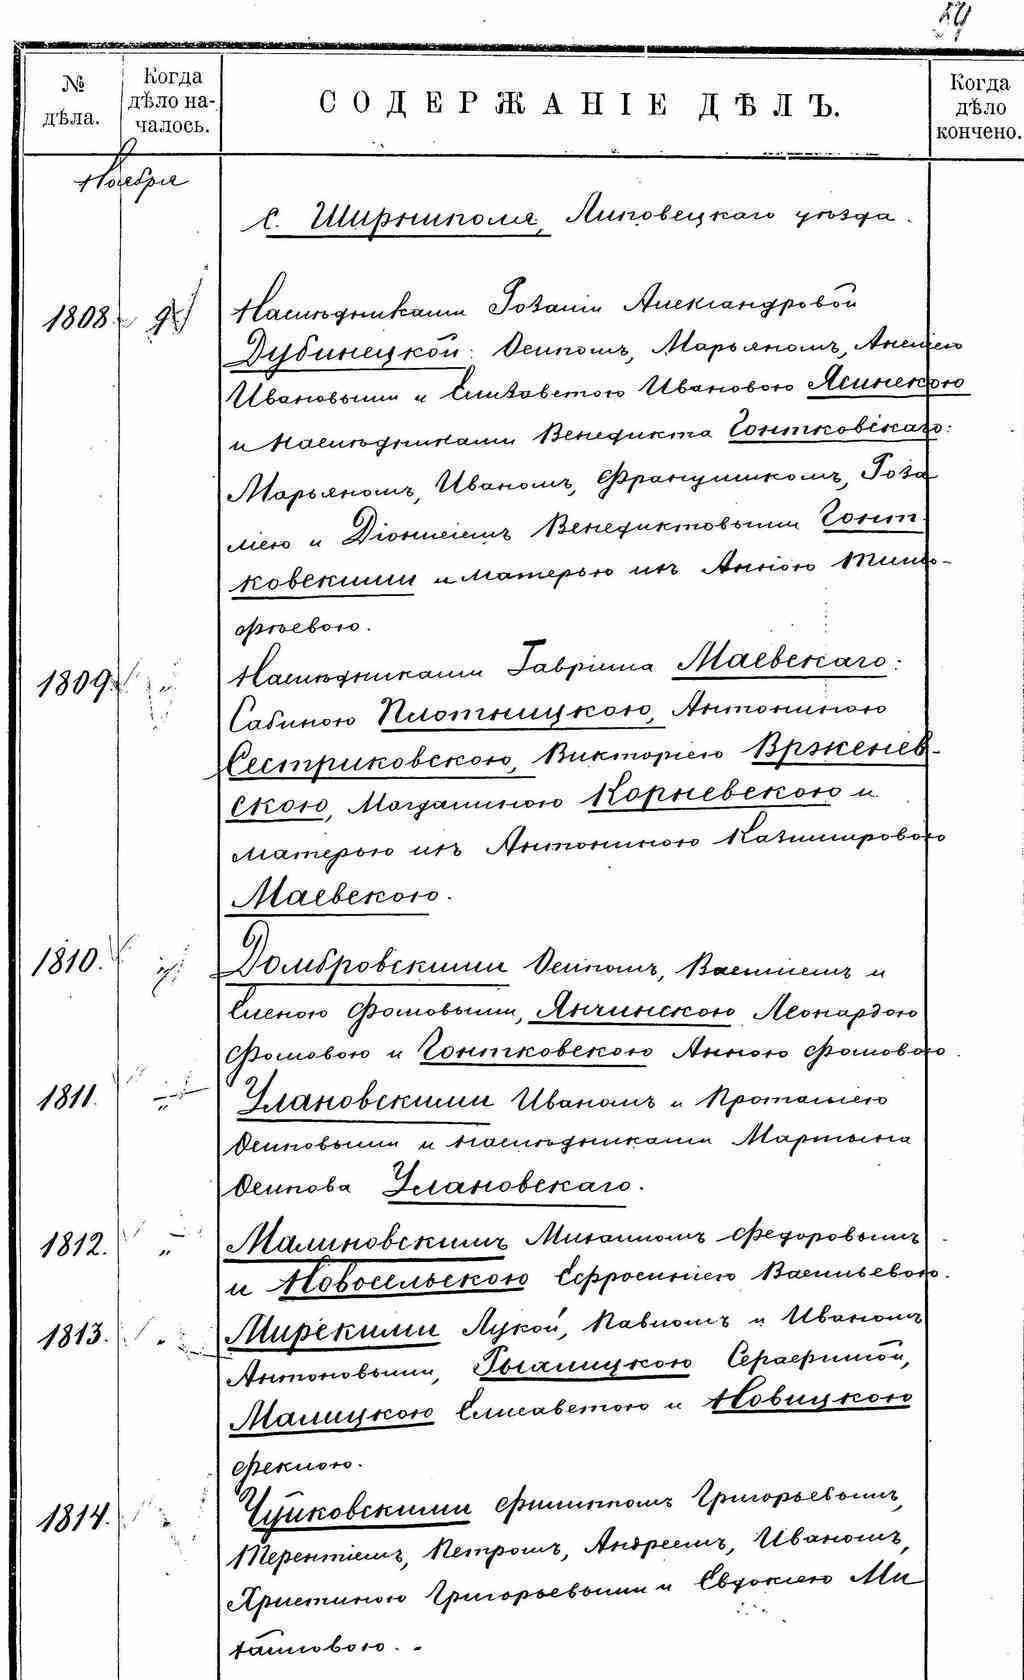 59
№ дѣла.
Когда дѣло началось.
СОДЕРЖАНІЕ ДѢЛЪ.
Когда дѣло кончено.
Ноября
с. Ширмиполя, Липовецкаго уѣзда.
1808. 9 Наслѣдниками Розаліи Александровой
Дубинецкой: Осипомъ, Марьяномъ, Анелiею
Ивановыми и Елизаветою Ивановою Ясинскою
и наслѣдниками Венедикта Гонтковскаго:
Марьяномъ, Иваномъ, Францишкомъ, Роза
ліею и Діонисіемъ Венедиктовыми Гонт-
ковскими и матерью ихъ Анною Тимо-
фѣевою.
1809. " Наслѣдниками Гавріила Маевскаго:
Сабиною Плотницкою, Антониною
Сестриковскою, ВикторіеюВрженев-
скою, Магдалиною Корневскою и
матерью ихъ Антониною Казимировою
Маевскою.
1810. " Домбровскими Осипомъ, Василіемъ и
Еленою Фомовыми, Янчинскою Леонардою
Фомовою и Гонтковскою Анною Фомовою.
1811. " Улановскими Иваномъ и Протасіею
Осиповыми и наслѣдниками Мартына
Осипова Улановскаго.
1812. " Малиновскимъ Михаиломъ Федоровымъ
и Новосельскою Ефросиніею Васильевою.
1813. " Мирскими Лукой, Павломъ и Иваномъ
Антоновыми, Рыхлицкою Серафимой,
Малицкою Елисаветою и Новицкою
Феклою.
1814. " Чуйковскими Филиппомъ Григорьевымъ,
Терентіемъ, Петромъ, Андреемъ, Иваномъ,
Христиною Григорьевыми и Евдокіею Ми
хайловою.